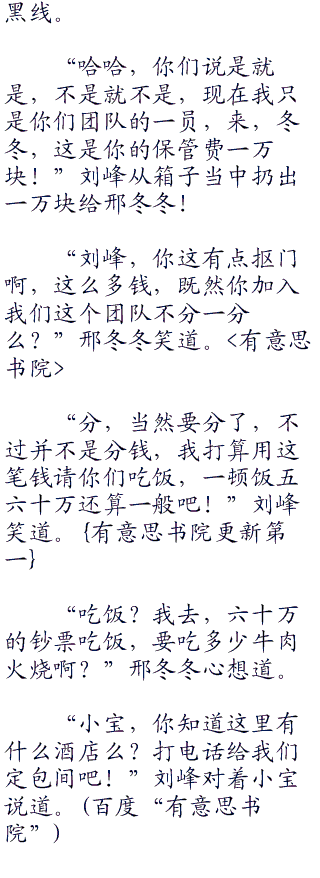 黑线。
“哈哈，你们说是就
是，不是就不是，现在我只
是你们团队的一员，来，冬
冬，这是你的保管费一万
块！”刘峰从箱子当中扔出
一万块给邢冬冬！
“刘峰，你这有点抠门
啊，这么多钱，既然你加入
我们这个团队不分一分
么？”邢冬冬笑道。<有意思
书院>
“分，当然要分了，不
过并不是分钱，我打算用这
笔钱请你们吃饭，一顿饭五
六十万还算一般吧！”刘峰
笑道。{有意思书院更新第
一}
“吃饭？我去，六十万
的钞票吃饭，要吃多少牛肉
火烧啊？”邢冬冬心想道。
“小宝，你知道这里有
什么酒店么？打电话给我们
定包间吧！”刘峰对着小宝
说道。(百度“有意思书
院”)